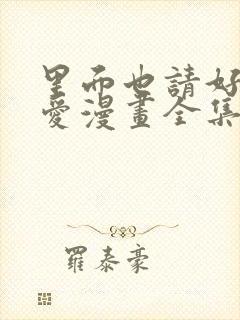 里而也請好
愛漫畫全集
羅泰豪